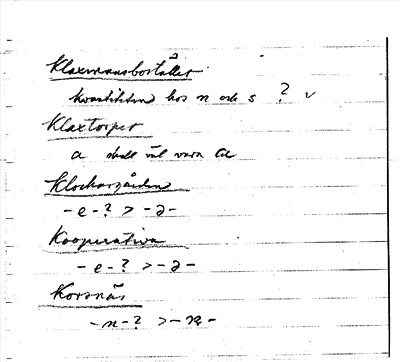 Klaxmansbostället
kvantiteten hos n och s ? v
Klaxtorpet
a skall väl vara a
Klockargården
- e - ? > - ə -
Kooperativa
- e - ? > - ə -
Korsnäs
- n - ? > - n -